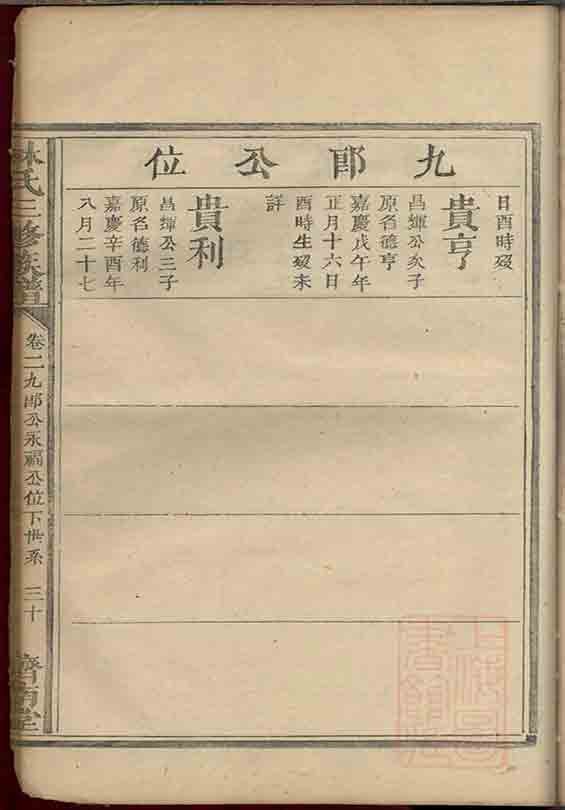 九郎公位
日酉時歿
貴亨
昌輝公次子
原名德亨
嘉慶戊午年
正月十六日
酉時生歿未
詳
貴利
昌輝公三子
原名德利
嘉慶辛酉年
八月二十七
林氏三修族譜
卷二九郎公永福公位下世系
三十